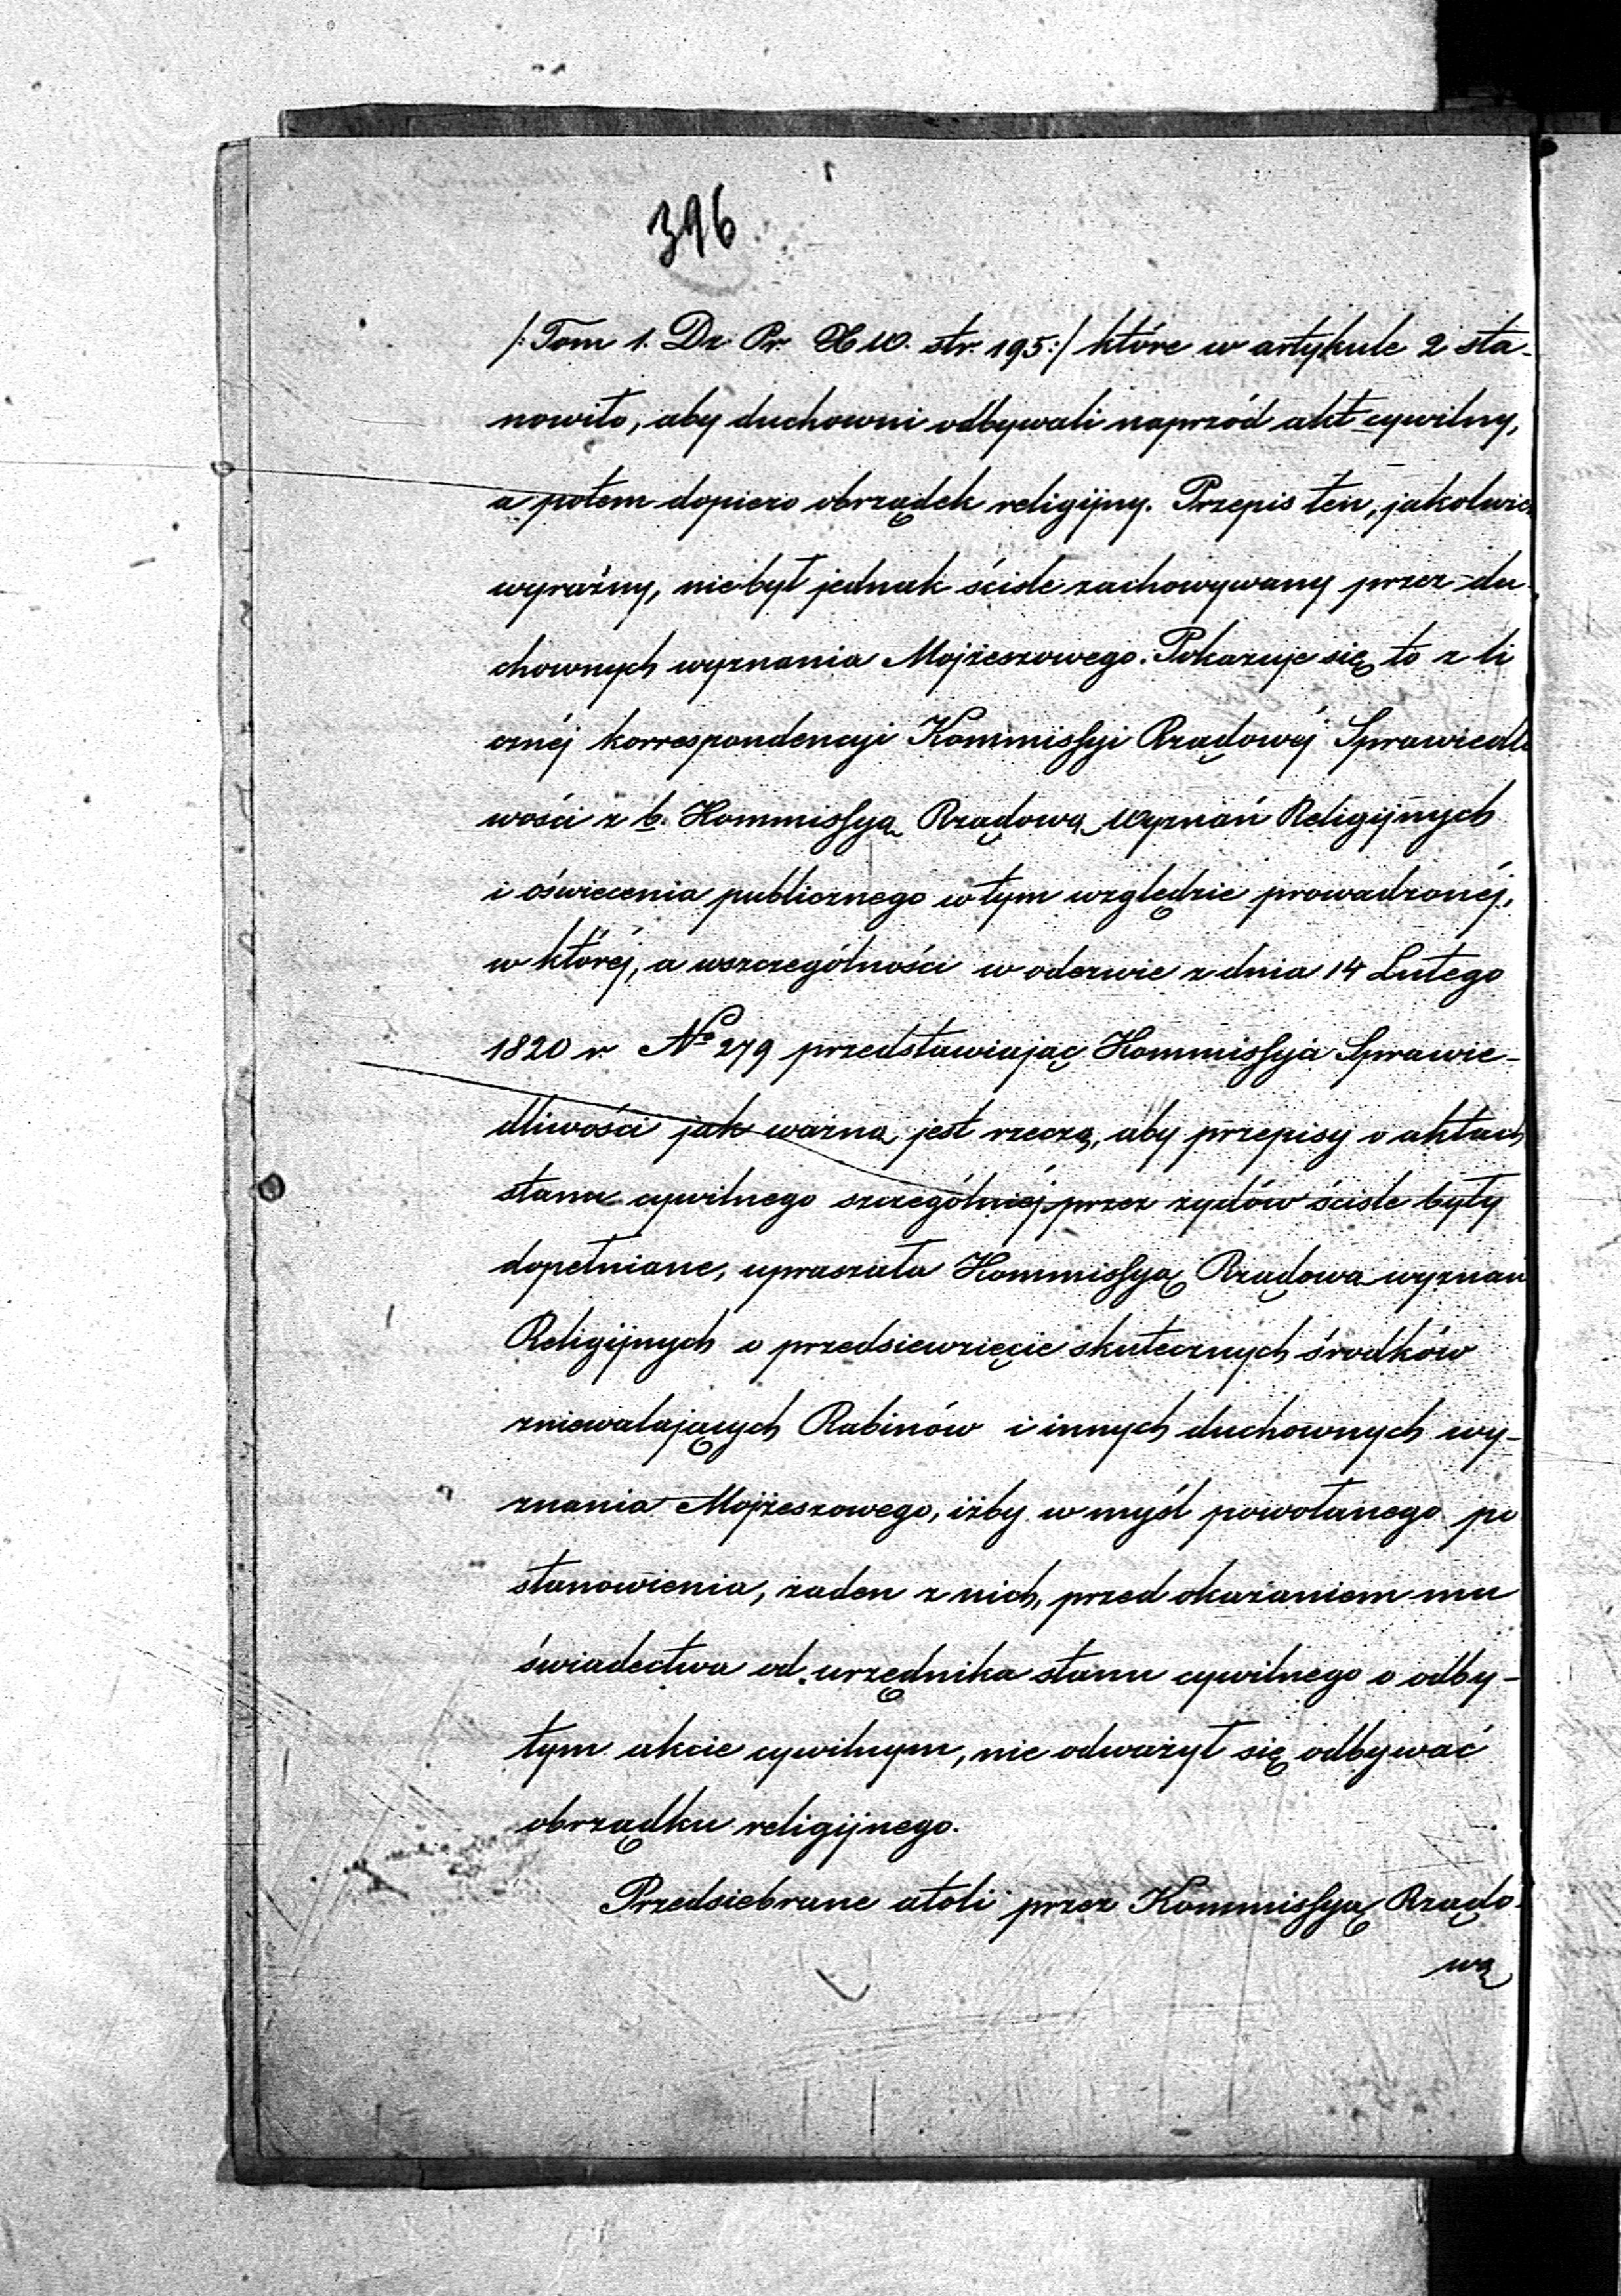 396
/: Tom 1. Dz. Pr. X W. str. 195:/ które w artykule 2 sta-
nowiło, aby duchowni odbywali naprzód akt cywilny,
a potem dopiero obrządek religijny. Przepis ten, jakolwiek
wyraźny, nie był jednak ściśle zachowywany przez du-
chownych wyznania Mojżeszowego. Pokazuje się to z li
cznéj korrespondencyi Kommissyi Rządowéj Sprawiedli
wości z b. Kommissyą Rządową Wyznań Religijnych
i oświecenia publicznego w tym względzie prowadzonéj,
w któréj, a wszczególności w odezwie z dnia 14 Lutego
1820 r. No 279 przedstawiając Kommissyja Sprawie-
dliwości jak ważną jest rzeczą, aby przepisy o aktach
stanu cywilnego szczególniéj przez żydów ściśle były
dopełniane, upraszała Kommissyą Rządową wyznań
Religijnych o przedsiewzięcie skutecznych środków
zniewalających Rabinów i innych duchownych wy-
znania Mojżeszowego, iżby w myśl powołanego po
stanowienia, żaden z nich, przed okazaniem mu
świadectwa od urzędnika stanu cywilnego o odby-
tym akcie cywilnym, nie odważył się odbywać
obrządku religijnego.
Przedsiebrane atoli przez Kommissyą Rządo-
wą